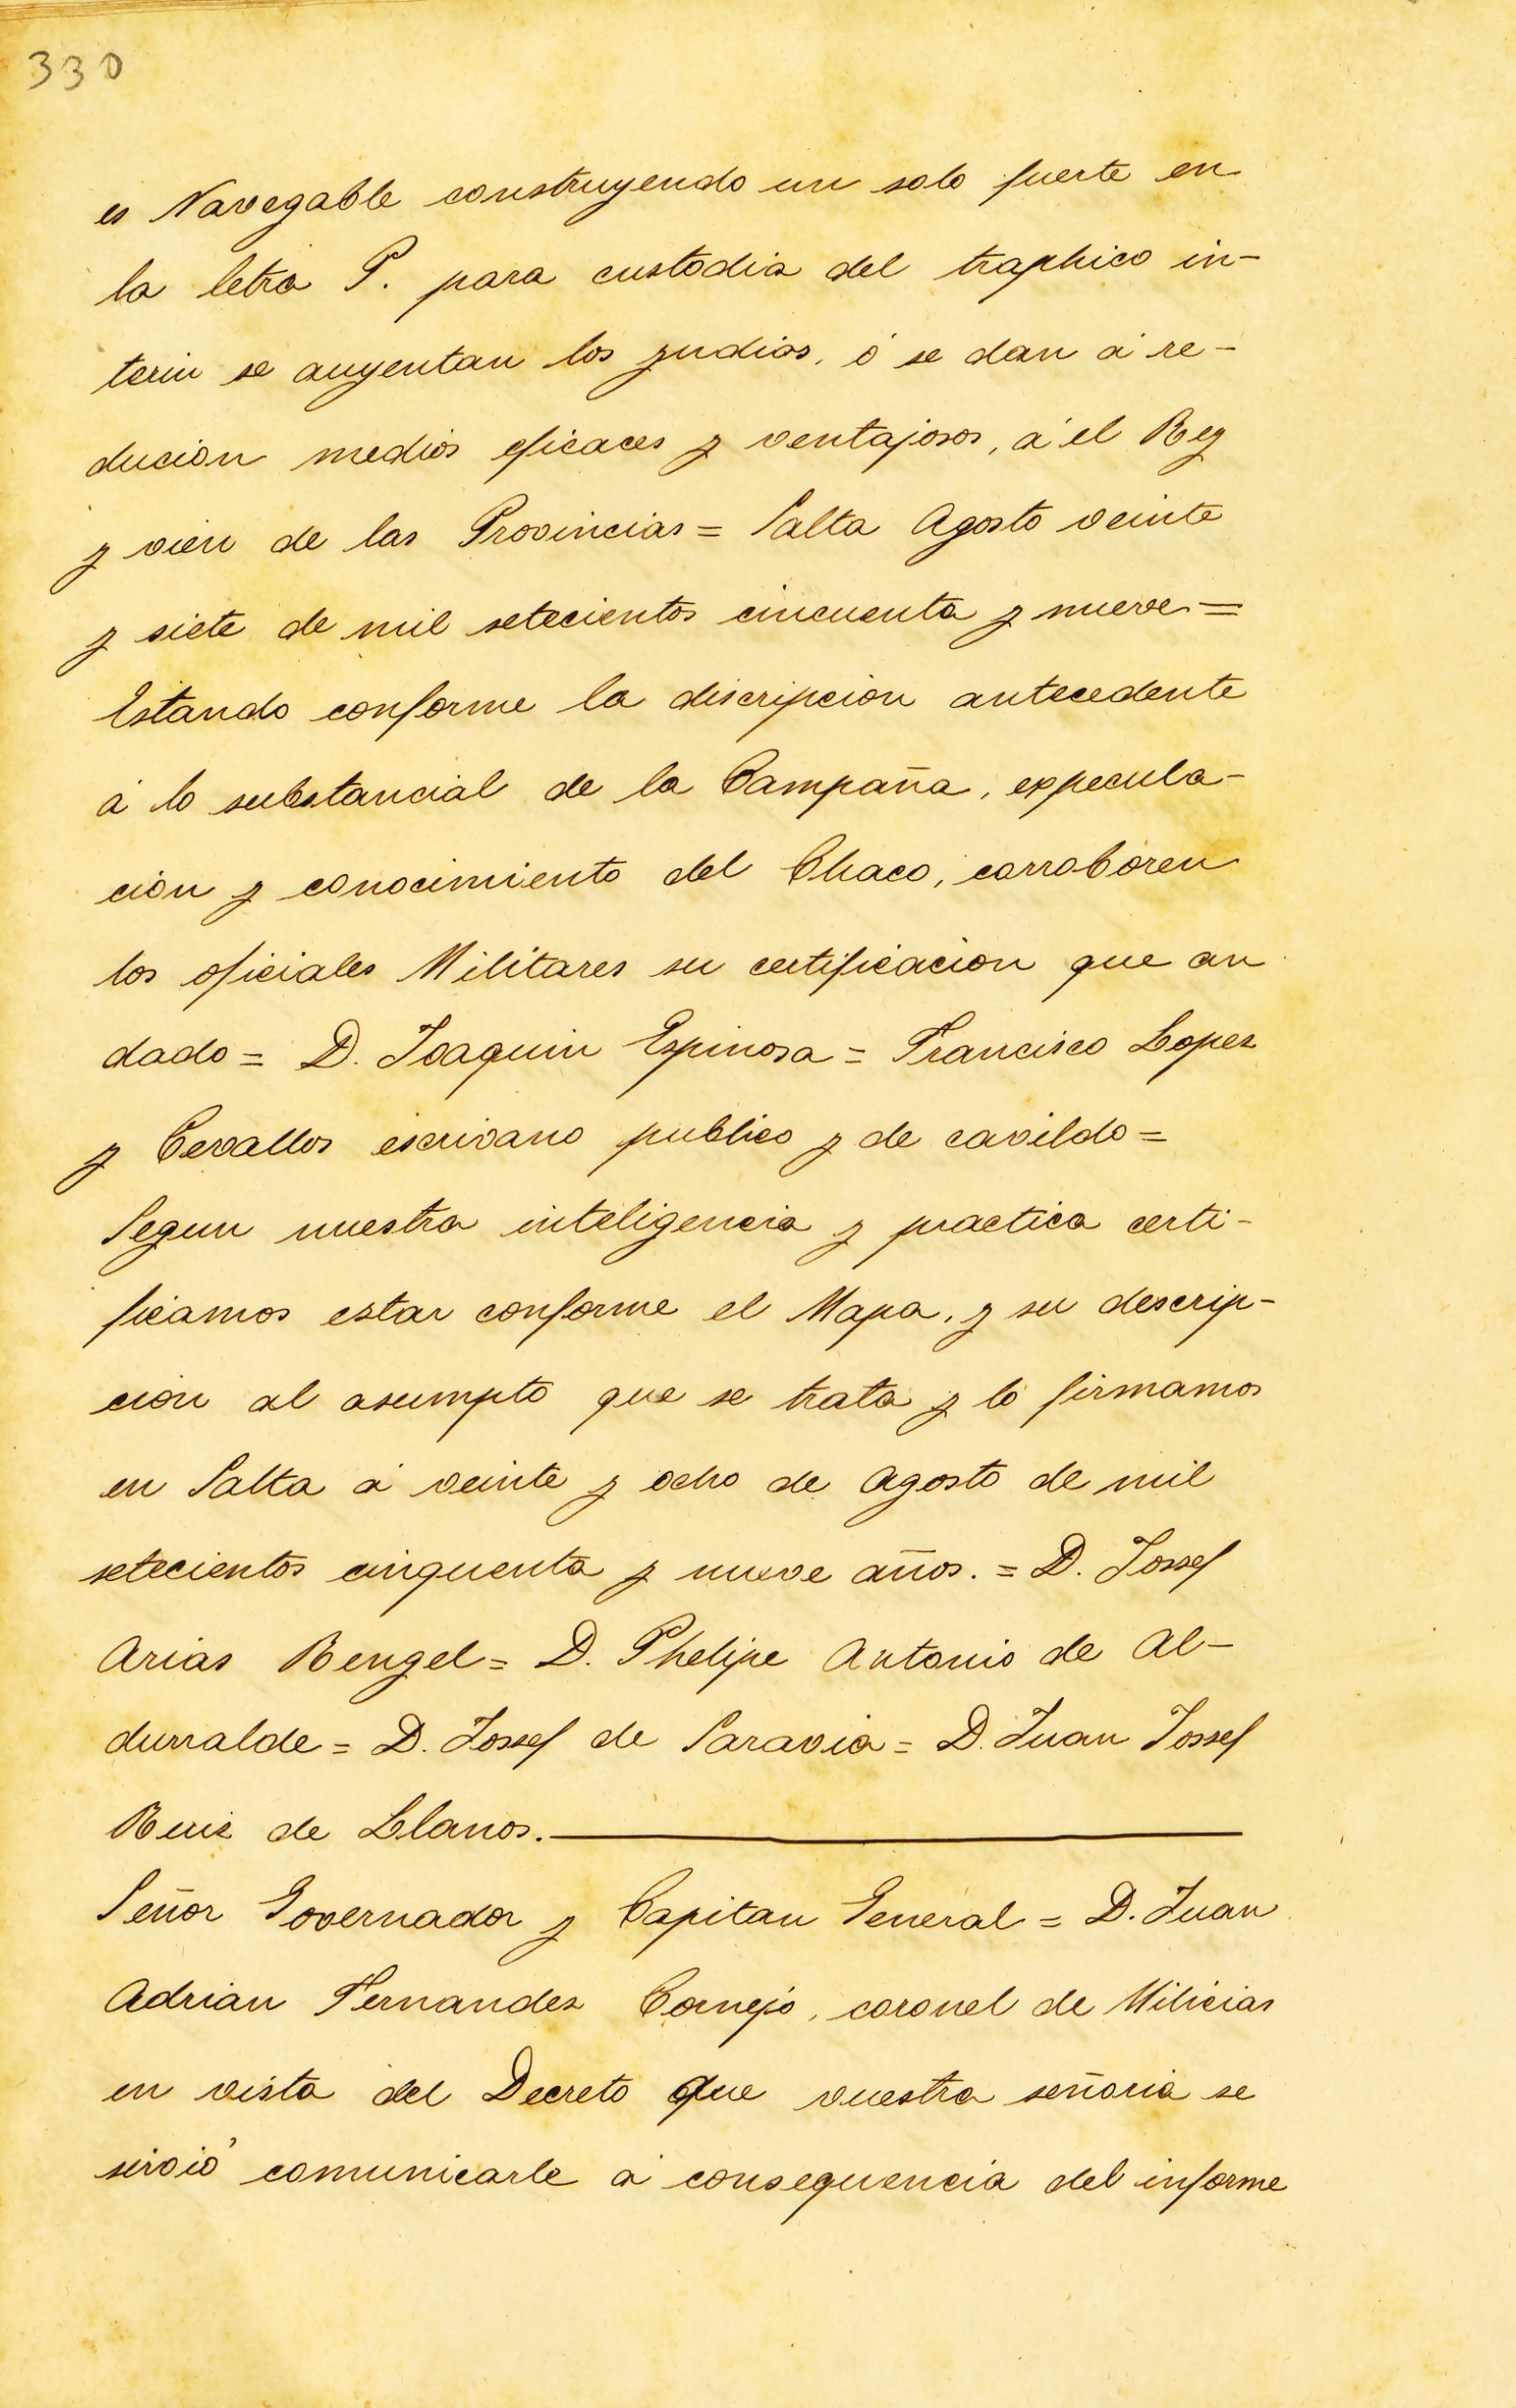 330
es Navegable construyendo un solo fuerte en
la letra P. para custodia del traphico in-
terin se auyentan los yndios, ó se dan á re-
ducion medios eficaces y ventajosos, á el Rey
y vien de las Provincias = Salta Agosto veinte
y siete de mil setecientos cincuenta y nueve =
Estando conforme la discripcion antecedente
á lo substancial de la Campaña, expecula-
cion y conocimiento del Chaco, corroboren
los oficiales Militares su certificacion que an
dado = D. Joaquin Espinosa = Francisco Lopez
y Cevallos escrivano publico y de cavildo =
Segun nuestra inteligencia y practica certi-
ficamos estar conforme el Mapa, y su descrip-
cion al asumpto que se trata y lo firmamos
en Salta á veinte y ocho de Agosto de mil
setecientos cinquenta y nueve años. = D. Jossef
Arias Rengel = D. Phelipe Antonio de Al-
durralde = D. Jossef de Saravia = D. Juan Jossef
Ruiz de Llanos.
Señor Governador y Capitan General = D. Juan
Adrian Fernandez Cornejo, coronel de Milicias
en vista del Decreto que vuestra señoria se
sirvió comunicarle á consequencia del informe